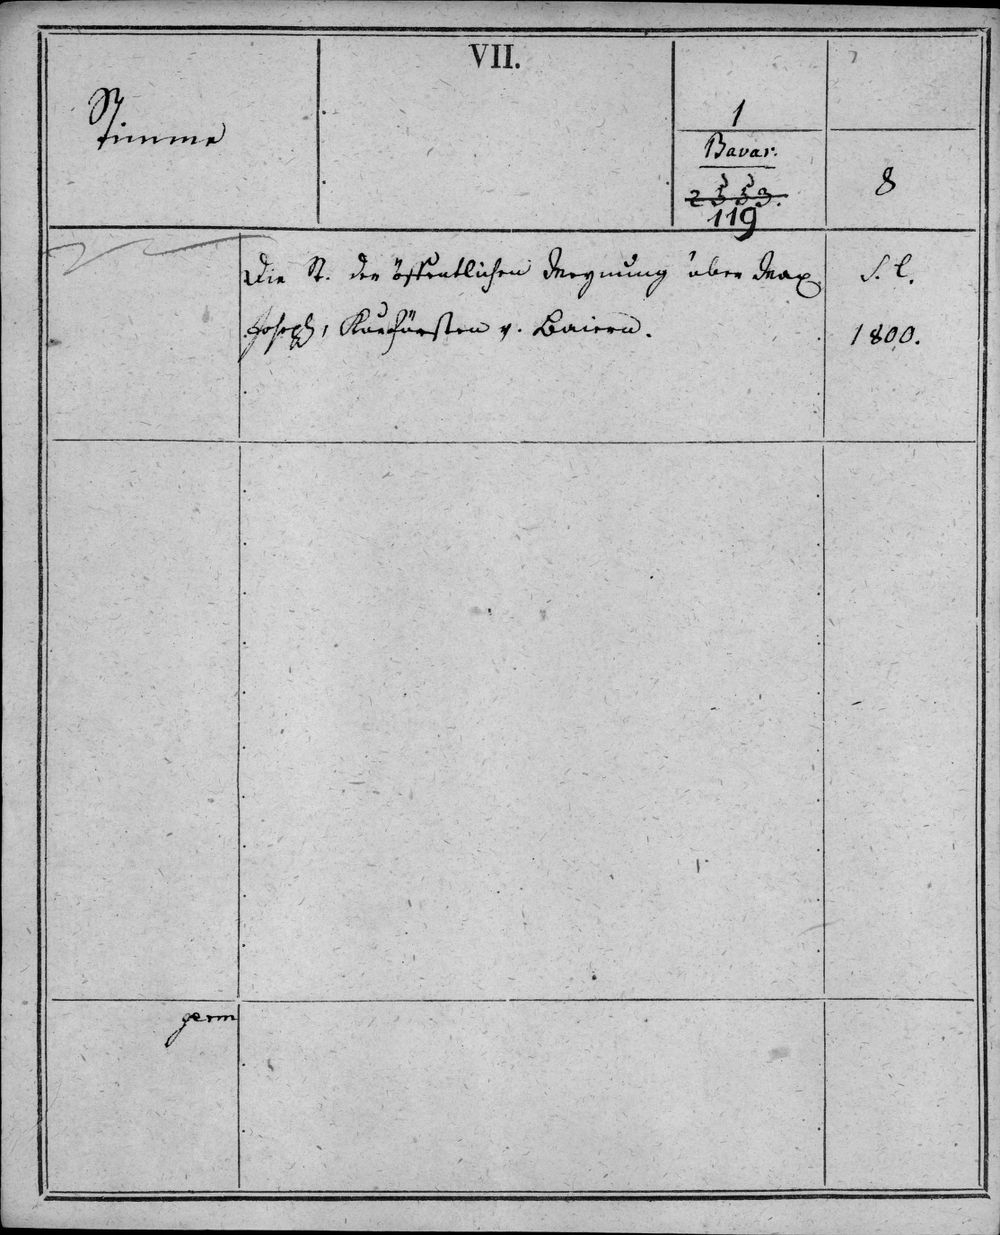 VII.
Stimme
1
Bavar.
119
8
Die St. der öffentlichen Meynung über Max
Joseph, Kurfürsten v. Baiern.
S. l.
1800.
germ